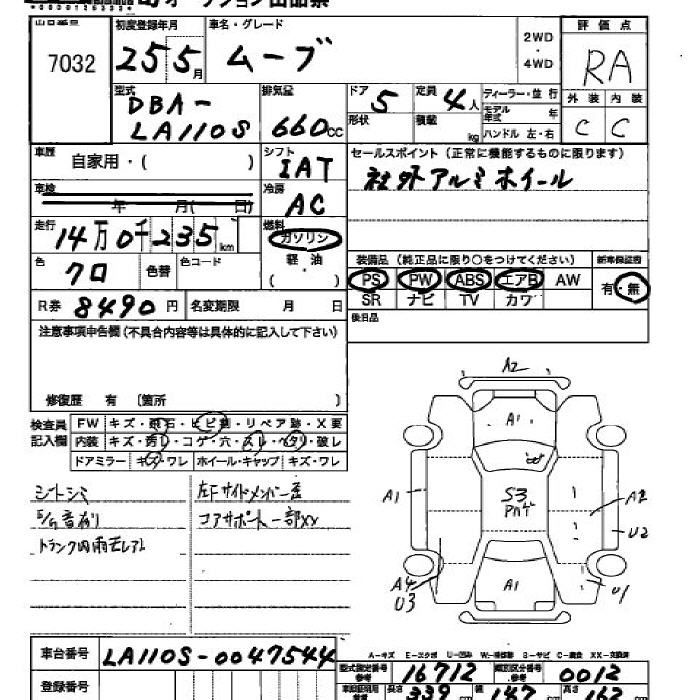 オークション出品票
出品番号 初度登録年月 車名・グレード 評価点
7032 25 5月 ムーブ 2WD・4WD RA
型式 排気量 ドア 5 定員 4人 ディーラー・並行 外装 内装
DBA-
LA110S 660cc 形状 積載 kg モデル年式 年 ハンドル 左・右 C C
車歴 自家用・( ) シフト IAT セールスポイント(正常に機能するものに限ります)
車検 年 月( 日) 冷房 AC 社外アルミホイール
走行 14万0千235km 燃料 ガソリン
色 クロ 色替 色コード 軽油 ( )
装備品(純正品に限り○をつけてください) 新車保証書
PS PW ABS エアB AW 有・無
SR ナビ TV カワ
R券 8490円 名変期限 月 日 後日品
注意事項申告欄(不具合内容等は具体的に記入して下さい)
修復歴 有 〔箇所 〕
検査員記入欄
FW キズ・飛石・ヒビ割・リペア跡・X要
内装 キズ・汚レ・コゲ・穴・スレ・ヘタリ・破レ
ドアミラー キズ・ワレ ホイール・キャップ キズ・ワレ
シートシミ
E/G音有り
トランク内雨モレアト
左Fサイドメンバー歪
コアサポート一部XX
A2
A1
S3
A1
A2
U2
A1
A4
U3
U1
A-キズ E-エクボ U-凹み W-補修跡 S-サビ C-腐食 XX-交換済
車台番号 LA110S-0047544
登録番号
型式指定番号 参考 16712 類別区分番号 参考 0012
長さ 339 幅 147 高さ 162